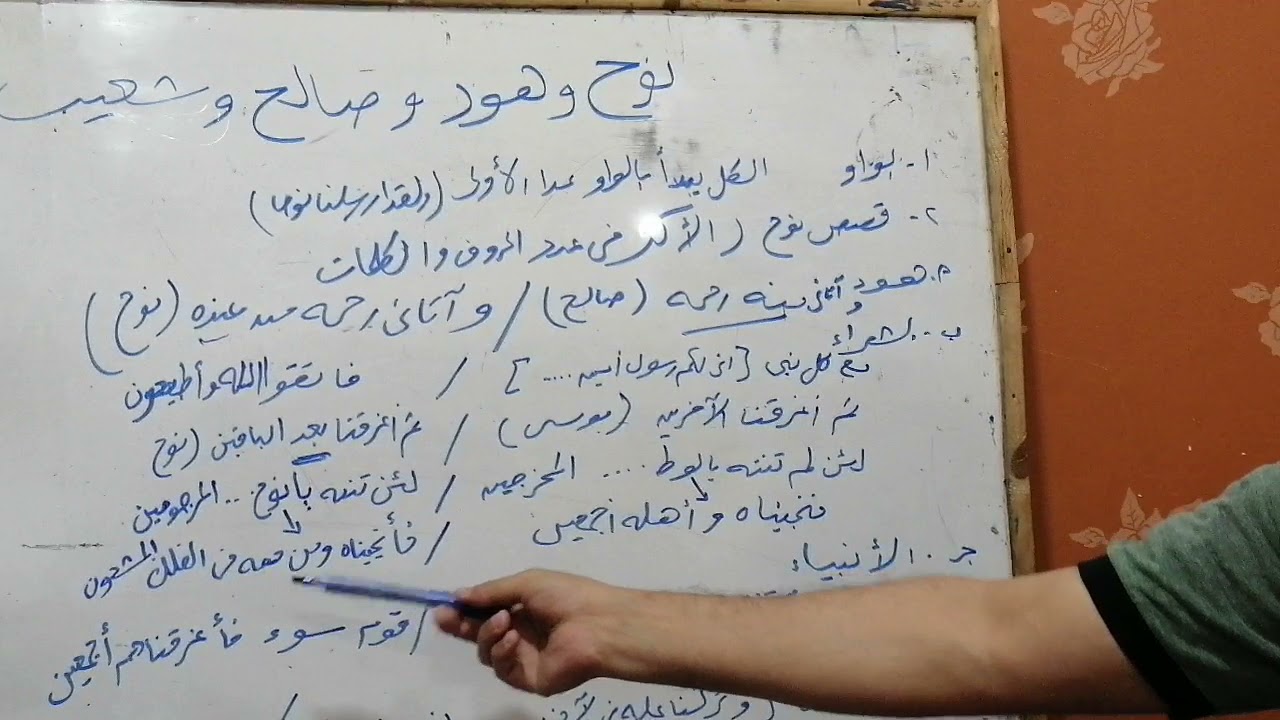 نوح وهود و صالح وشعيب
١- بالواو الكل يبدأ بالواو عدا الأولى (ولقد ارسلنا نوحا)
٢- قصص نوح ( الأكبر فى عدد الحروف والكلمات
٨. هود و آتانى منه رحمه (صالح) / و آتانى رحمه من عنده (نوح)
ب - الشعراء
مع كل نبى [انى لكم رسول أمين ....] / فاتقوا الله وأطيعون
ثم أغرقنا الآخرين (موسى) / ثم اغرقنا بعد الباقين (نوح
لئن لم تنته يا لوط .... المخرجين / لئن تنته يا نوح .. المرجومين
فنجيناه و أهله اجمعين / فأنجيناه ومن معه فى الفلك المشحون
جـ - الأنبياء
/ قوم سوء فأغرقناهم أجمعين